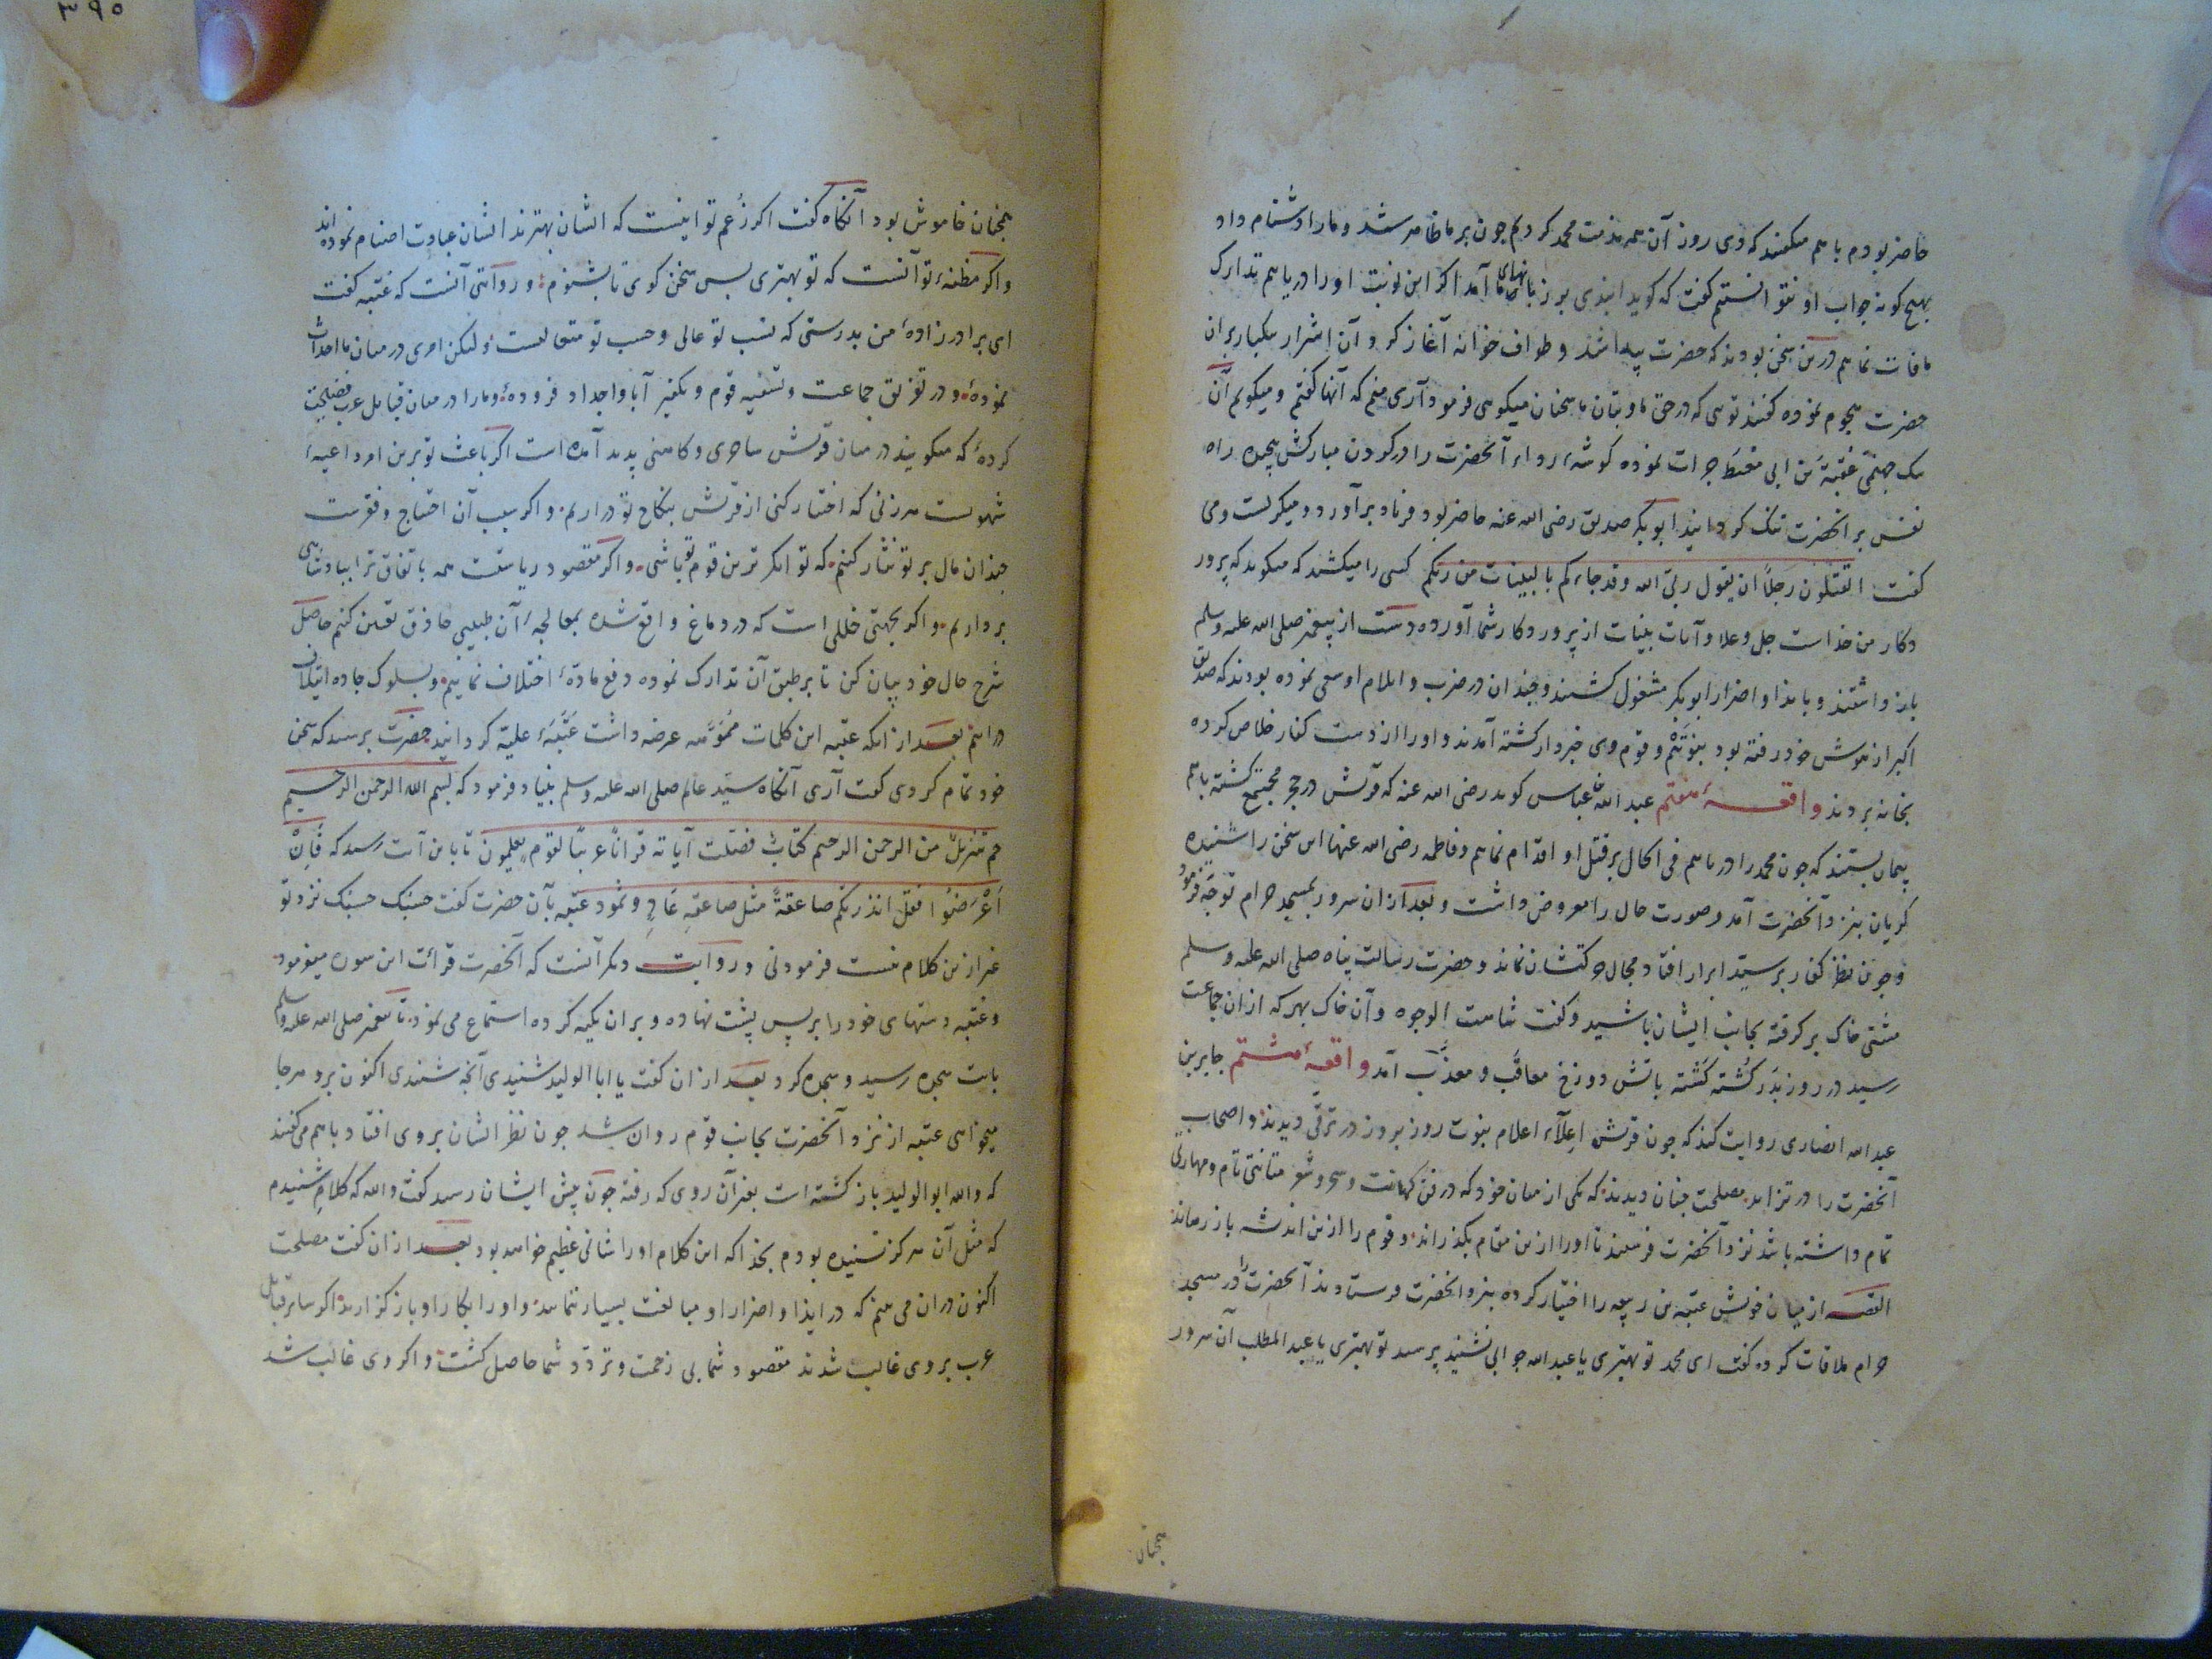 حاضر بودم باهم میکفتند که دی روز آن همه مذمت محمد کردیم چون بر ما ظاهر شد و مارا دشنام داد
بهیچ کونه جواب او نتوانستیم کفت که کوید ایندی بر زبانهای ما آمد اکر این نوبت اورا دریابیم تدارک
مافات نماییم درین سخن بودند که حضرت پیدا شد و طواف خانه آغاز کرد آن اشرار بیکبار بران
حضرت هجوم نموده کفتند توئی که در حق ما و بتان ما سخنان میکوئی فرمود آری منم که آنها کفتم و میکویم آن
سک جهنمی عقبة بن ابی معیط جرات نموده کوشهٔ رداء آنحضرت را در کردن مبارکش پیچیده راه
نفس بر آنحضرت تنک کردانید ابوبکر صدیق رضی الله عنه حاضر بود فریاد برآورد و میکریست و می
کفت اتقتلون رجلاً ان یقول ربی الله وقد جاءکم بالبینات من ربکم کسی را میکشید که میکوید که پرور
دکار من خداست جل و علا و آیات بینات از پروردکار شما آورده دست از پیغمبر صلی الله علیه وسلم
باز داشتند و بایذا و اضرار ابوبکر مشغول کشتند و چندان در ضرب و ایلام او سعی نموده بودند که صدیق
اکبر از هوش خود رفته بود بنوتیم و قوم وی خبردار کشته آمدند و اورا از دست کفار خلاص کرده
بخانه بردند واقعهٔ هفتم عبد الله عباس کوید رضی الله عنه که قریش در حجر مجتمع کشته باهم
پیمان بستند که چون محمد را دریابیم فی الحال بر قتل او اقدام نماییم و فاطمه رضی الله عنها این سخن را شنیده
کریان بنزد آنحضرت آمد و صورت حال را معروض داشت و بعد ازان سرور بمسجد حرام توجه فرمود
و چون نظر کفار بر سید ابرار افتاد مجال حرکتشان نماند و حضرت رسالت پناه صلی الله علیه وسلم
مشتی خاک بر کرفته بجانب ایشان پاشید و کفت شاهت الوجوه و آن خاک بهر که ازان جماعت
رسید در روز بدر کشته کشته باتش دوزخ معاقب و معذب آمد واقعهٔ هشتم جابر بن
عبد الله انصاری روایت کند که چون قریش اعلاء اعلام نبوت روز بروز در ترقی دیدند و اصحاب
آنحضرت را در تزاید مصلحت چنان دیدند که یکی از میان خود که در فن کهانت و سحر و شعر متانتی تام و مهارتی
تمام داشته باشد نزد آنحضرت فرستند تا اورا ازین مقام بکذراند و قوم را ازین اندیشه باز رهاند
القصه از میان خویش عتبه بن ربیعه را اختیار کرده بنزد آنحضرت فرستادند آنحضرت را در مسجد
حرام ملاقات کرده کفت ای محمد تو بهتری یا عبد الله جوابی نشنید پرسید تو بهتری یا عبد المطلب آن سرور
همچنان
٣٩٥
همچنان خاموش بود آنکاه کفت اکر زعم تو اینست که ایشان بهترند ایشان عبادت اصنام نموده اند
و اکر مظنهٔ تو آنست که تو بهتری پس سخن کوی تا بشنوم و روایتی آنست که عتبه کفت
ای برادر زادهٔ من بدرستی که نسب تو عالی و حسب تو متعالیست ولیکن امری در میان ما احداث
نمودهٔ و در تفریق جماعت و تسفیه قوم و تکفیر آبا و اجداد فزودهٔ و مارا در میان قبایل عرب فضیحت
کردهٔ که میکویند در میان قریش ساحری و کاهنی پدید آمده است اکر باعث تو برین امر داعیهٔ
شهوتست هر زنی که اختیار کنی از قریش بنکاح تو در آریم و اکر سبب آن احتیاج و فقرست
چندان مال بر تو نثار کنیم که توانکر ترین قوم تو باشی و اکر مقصود ریاستست همه باتفاق ترا ببادشاهی
برداریم و اکر بجهتی خللی است که در دماغ واقع شده بمعالجهٔ آن طبیبی حاذق تعیین کنیم حاصل
شرح حال خود بیان کن تا بر طبق آن تدارک نموده دفع مادهٔ اختلاف نماییم و بسلوک جاده ایتلاف
در آییم بعد از آنکه عتبه این کلمات مموّهه عرضه داشت عتبهٔ علیه کردانید حضرت پرسید که سخن
خود تمام کردی کفت آری آنکاه سید عالم صلی الله علیه وسلم بنیاد فرمود که بسم الله الرحمن الرحیم
حم تنزیل من الرحمن الرحیم کتاب فصلت آیاته قراناً عربیاً لقوم یعلمون تا باین آیت رسید که فان
اعرضوا فقل انذرتکم صاعقةً مثل صاعقة عاد و ثمود عتبه بآن حضرت کفت حسبک حسبک نزد تو
غیر ازین کلام نیست فرمود نی و روایت دیکر آنست که آنحضرت قرائت این سوره میفرمود
و عتبه دستهای خود را بر پس پشت نهاده و بران تکیه کرده استماع می نمود تا پیغمبر صلی الله علیه وسلم
بایت سجده رسید و سجده کرد بعد ازان کفت یا ابا الولید شنیدی آنچه شنیدی اکنون برو هر جا
میخواهی عتبه از نزد آنحضرت بجانب قوم روان شد چون نظر ایشان بر وی افتاد باهم می کفتند
که والله ابو الولید باز کشته است بغیر آن روی که رفته چون پیش ایشان رسید کفت والله که کلامی شنیدم
که مثل آن هرکز نشنیده بودم بخدا که این کلام اورا شانی عظیم خواهد بود بعد ازان کفت مصلحت
اکنون دران می بینم که در ایذا و اضرار او مبالغت بسیار ننمایید و اورا بکار او باز کزارید اکر سایر قبایل
عرب بر وی غالب شدند مقصود شما بی زحمت و تردد شما حاصل کشت و اکر وی غالب شد